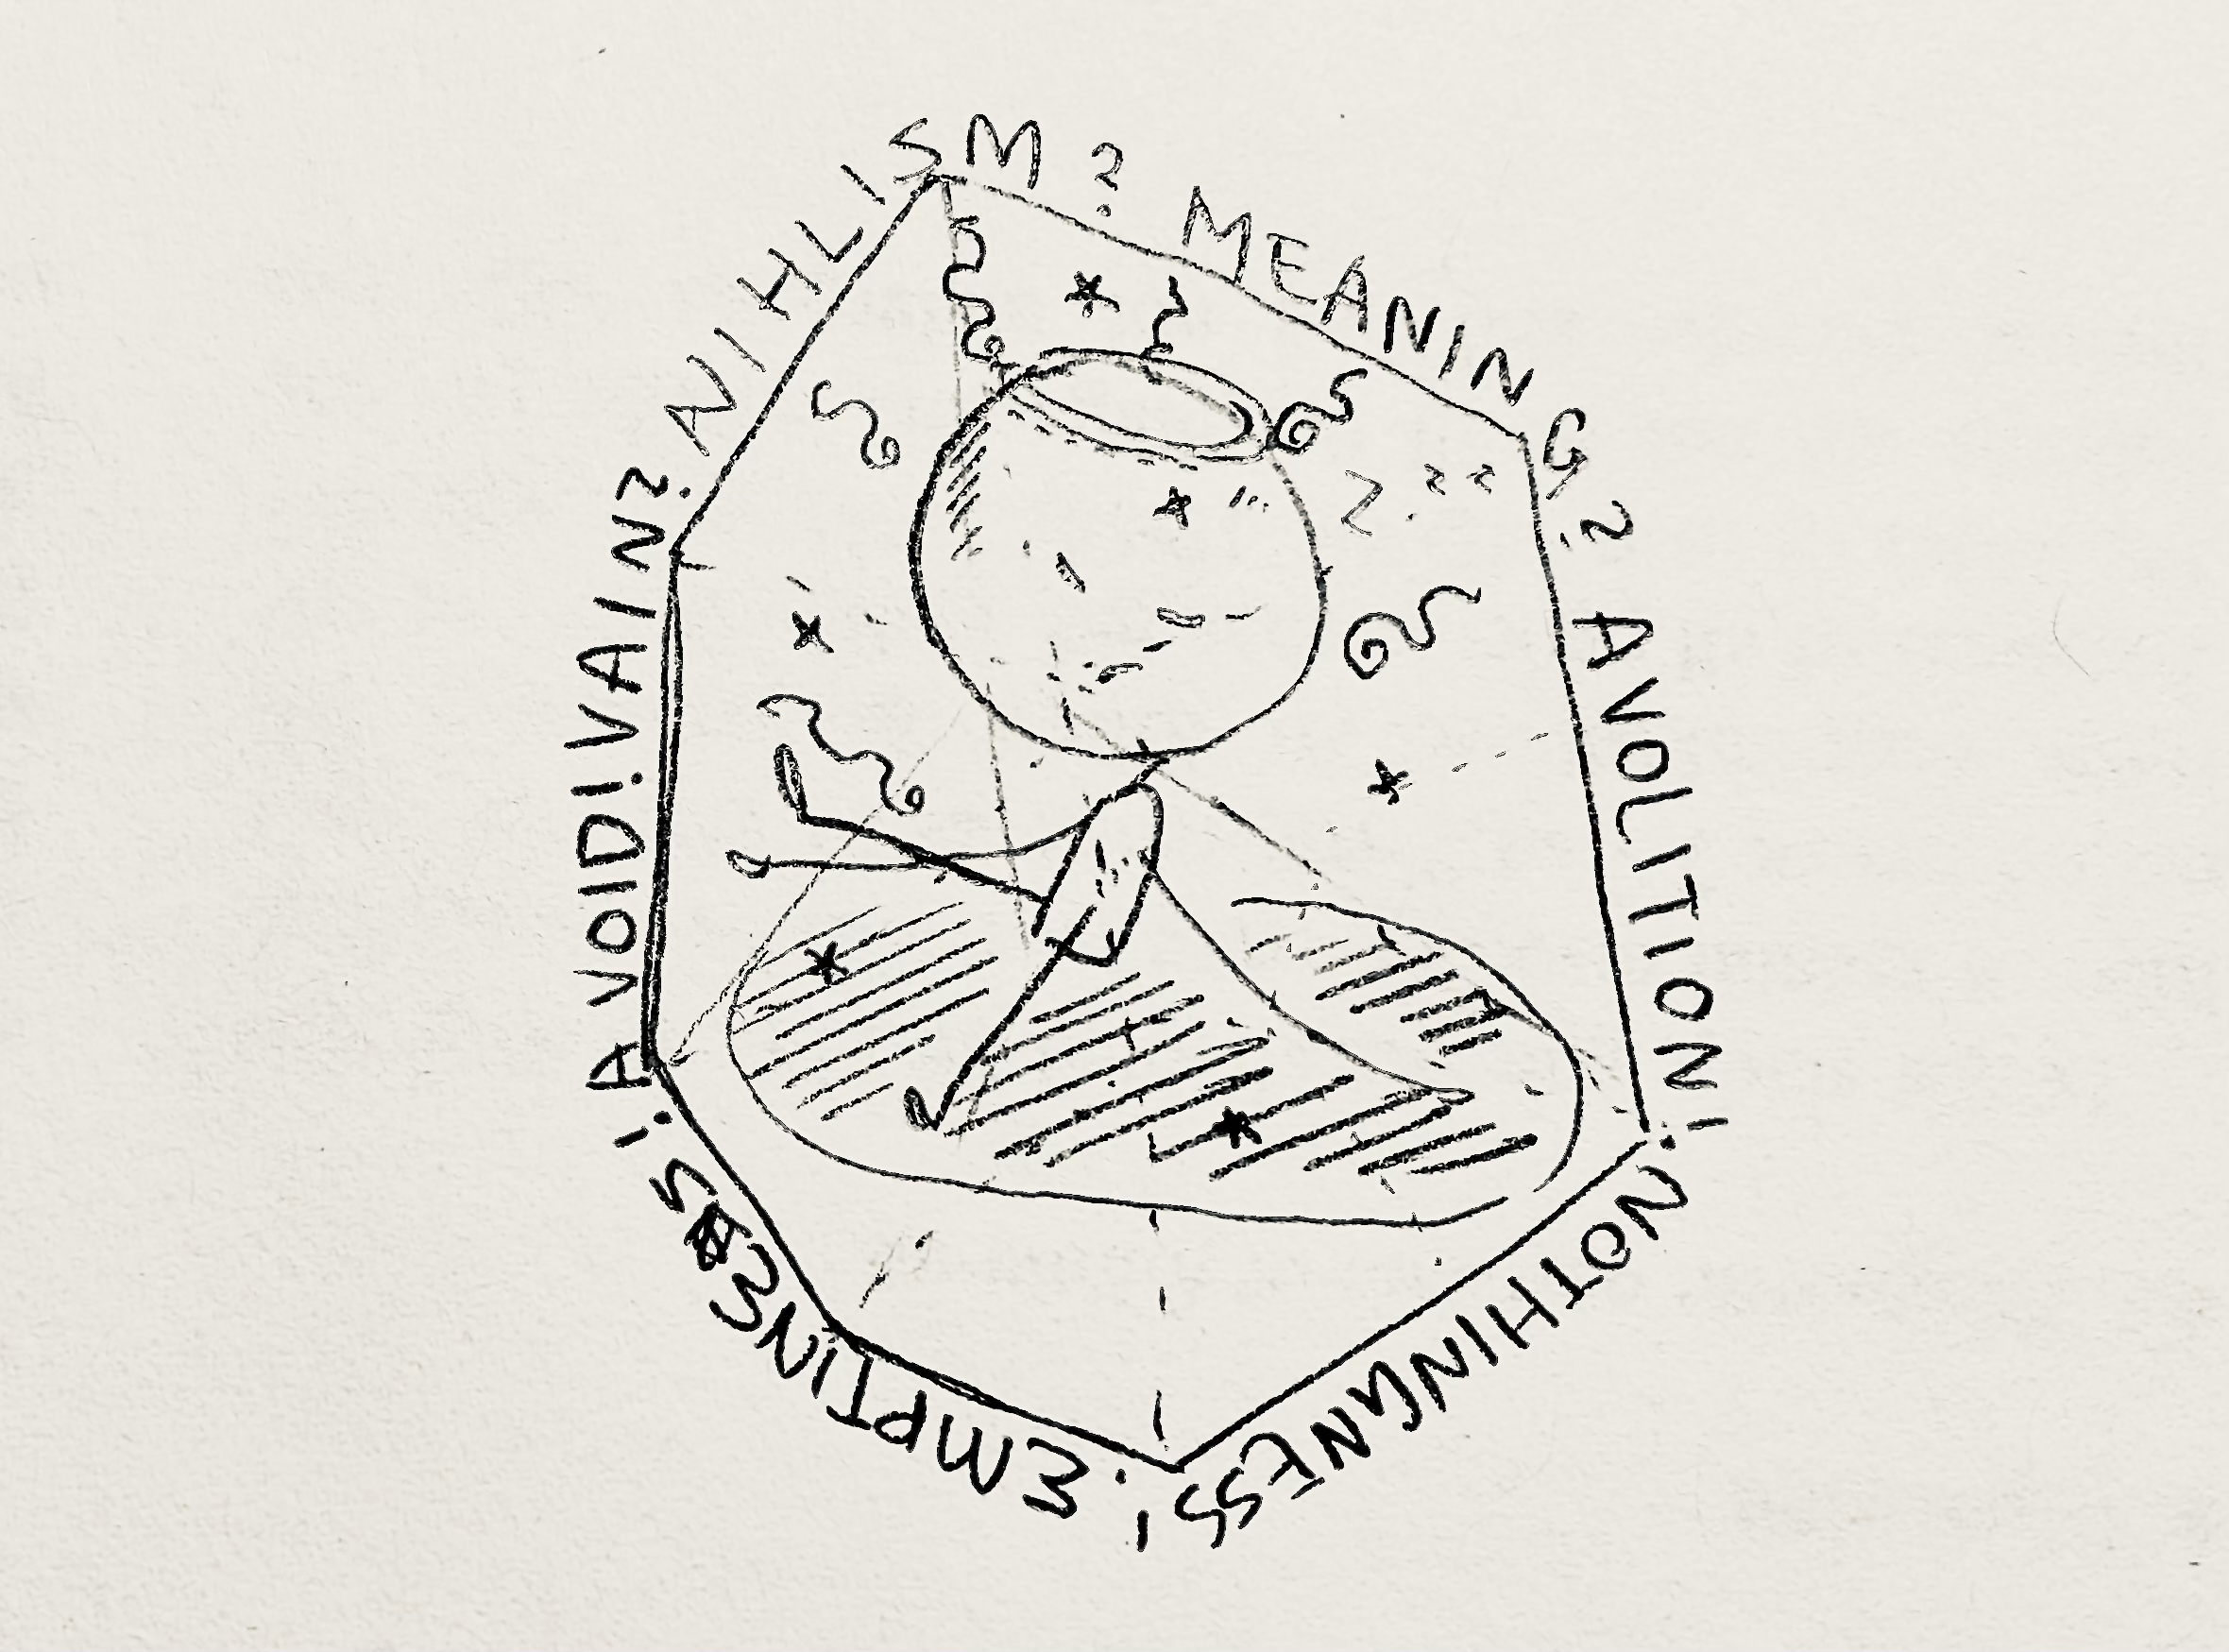 NIHLISM?
MEANING?
AVOLITION!
NOTHINGNESS!
EMPTINESS!
A VOID!
VAIN?
Z.??